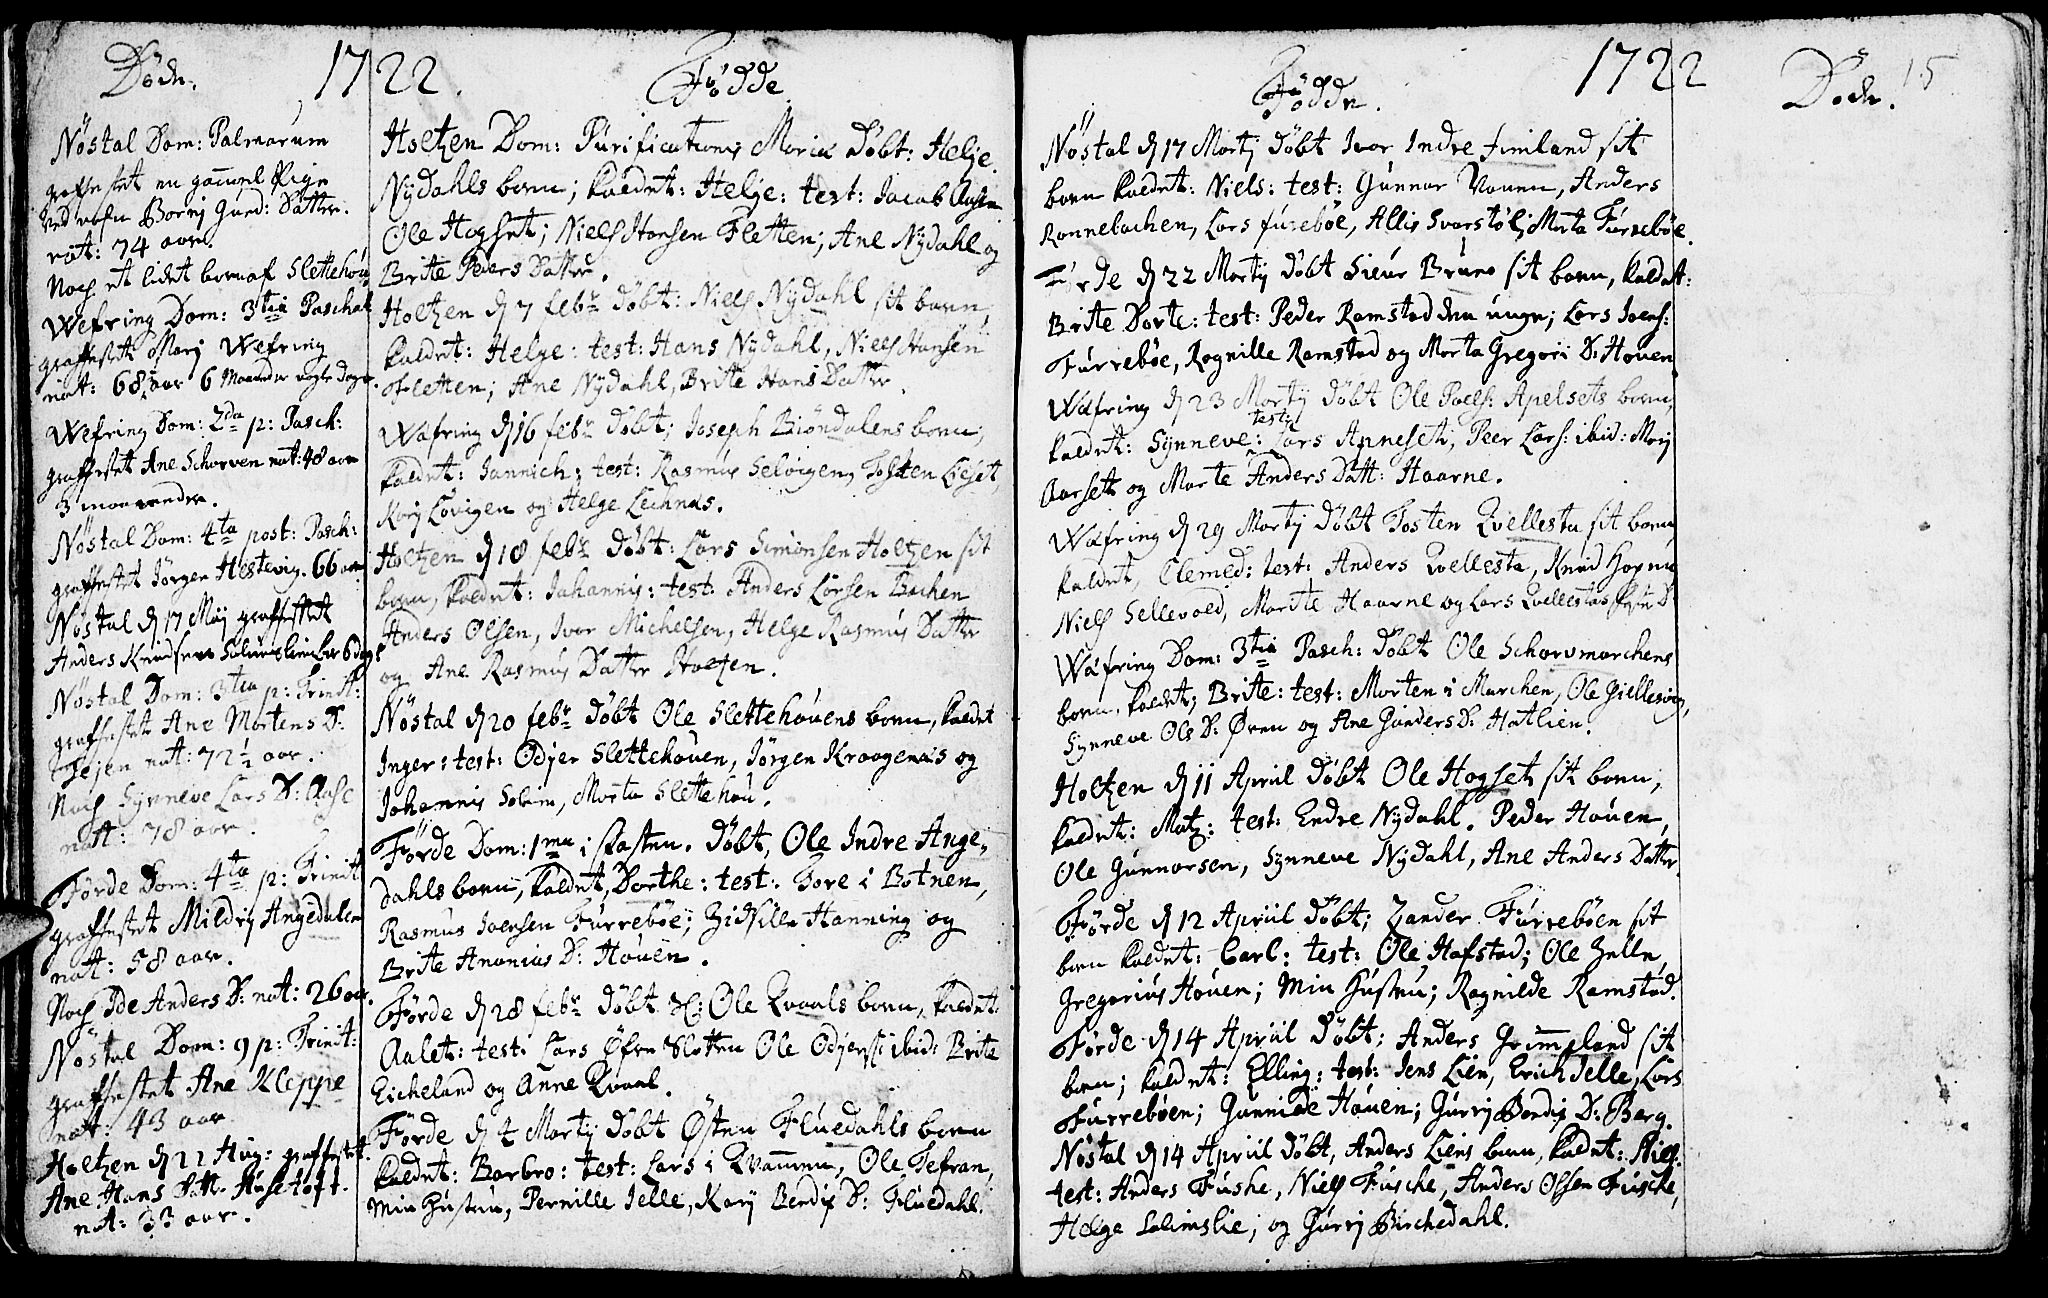 Døde.
1722.
Nøstal Dom: Palmarum
graffestet en gammel Pige
ved nafn Borrij Gund: Datter.
nat: 74 aar.
Noch et lidet barn af Slettehou
Wefring Dom: 3tia Paschat
graffestet Marj Wefring
nat: 68 aar 6 Maaneder nogle dage.
Wefring Dom: 2da p: Pasch:
graffestet Ane Schorven nat: 48 aar
3 maaneder.
Nøstal Dom: 4ta post: Pasch:
graffestet Jørgen Hestevig. 66 aar
Nøstal d 17 Maij graffestet
Anders Knudsens 6 dage
Nøstal Dom: 3tia p: Trinit:
graffestet Ane Mortens D:
nat: 72½ aar.
Noch Synneve Lars D: Aase
natt: 78 aar.
Førde Dom: 4ta p: Trinit
graffestet Mildrij Angedalen
natt: 58 aar.
Noch Ide Anders D: nat: 26 aar.
Nøstal Dom: 9 p: Trinit:
graffestet Ane Kleppe
nat: 43 aar
Holtzen d 22 Aug: graffestet.
Ane Hans Datt. Husetoft.
nat: 33 aar.
Fødde
Holtzen Dom: Purificationis Mariæ Døbt: Helje
Nÿdahls barn; kaldet: Helje: test: Jacob Aasen
Ole Hogset; Niels Hansen Fletten; Ane Nÿdahl og
Brite Peders Datter.
Holtzen d 7 febr Døbt: Niels Nÿdahl sit barn,
kaldet: Helge: test: Hans Nÿdahl, Niels Hansen
Fletten; Ane Nÿdahl, Brite Hans Datter.
Wæfring d 16 febr Døbt; Joseph Biöndalens barn;
kaldet: Jannich; test: Rasmus Seløigen, Tosten Lieset,
Karj Løvigen og Helge Lechnæs.
Holtzen d 18 febr Døbt: Lars Simonsen Holtzen sit
barn, kaldet: Johannis: test: Anders Larsen Bachen
Anders Olsen, Ivar Michelsen, Helge Rasmus Datter
og Ane Rasmus Datter Holtzen.
Nøstal d 20 febr Døbt Ole Slettehouens barn, kaldet
Inger: test: Odjer Slettehouen, Jørgen Kraagenæs og
Johannis Solem, Marta Slettehou.
Førde Dom: 1ma i fasten. Døbt, Ole Indre Ange-
dahls barn, kaldet, Dorthe: test: Tore i Botnen,
Rasmus Joensen Furrebøe; Zidsille Hanning og
Brite Ananias D: Houen.
Førde d 28 febr Døbt Ole Qvaals barn, kaldet
Aalet: test: Lars Øfre Slotten Ole Odjerss: ibid: Brite
Eicheland og Anne Qvaal.
Førde d 4 Martij Døbt Østen Fluedahls barn
kaldet: Barbro: test: Lars i Qvammen, Ole Tefran,
Min Hustru, Pernille Jelle, Karj Bendix D: Fluedahl.
1722
15
Fødde.
Døde.
Nøstal d 17 Martij Døbt Ivar Indre Fimland sit
barn kaldet: Niels: test: Gunnar Vonen, Anders
Rannebachen, Lars furebøe, Allis Svarstøl; Marta Furrebøe.
Førde d 22 Martij Døbt Sieur Bruno sit barn, kaldet:
Brite Dorte: test: Peder Ramstad den unge; Lars Joens:
Furrebøe, Ragnille Ramstad og Marta Gregori D: Houen
Wæfring d 23 Martij Døbt Ole Poels: Apelsets barn,
kaldet: Synneve: test: Lars Apneseth, Peer Lars: ibid: Marj
Aarseth og Marte Anders Datt: Haarne.
Wæfring d 29 Martij Døbt Tosten Qvellesta sit barn
kaldet, Clemed: test: Anders Qvellesta, Knud
Niels Sellevoed, Marite Haarne og Lars Qvellestas
Wæfring Dom: 3tia Pasch: Døbt Ole Schorvmarchens
barn, kaldet; Brite: test: Morten i Marchen, Ole Giellesvig,
Synneve Ols D: Øren og Ane Gunders D: Hatlien.
Holtzen d 11 April Døbt Ole Hogset sit barn,
kaldet: Matz: test: Endre Nÿdahl. Peder Houen,
Ole Gunnarsen, Synneve Nÿdahl, Ane Anders Datter
Førde d 12 Apriil Døbt; Zander Furrebøen sit
barn kaldet: Carl: test: Ole Hafstad; Ole Zelle,
Gregorius Houen; Min Hustru; Ragnilde Ramstad.
Førde d 14 Apriil Døbt; Anders Grimeland sit
barn; kaldet: Elling: test: Jens Lien, Erich Jelle, Lars
Furrebøen; Gunnilde Houen; Gurrj Bendix D: Berg.
Nøstal d 14 Apriil Døbt, Anders Liens barn, kaldet: Niels.
test: Anders Fushe, Niels Fusche, Anders Olsen Fusche,
Helge Solimslie, og Gurrj Birchedahl.